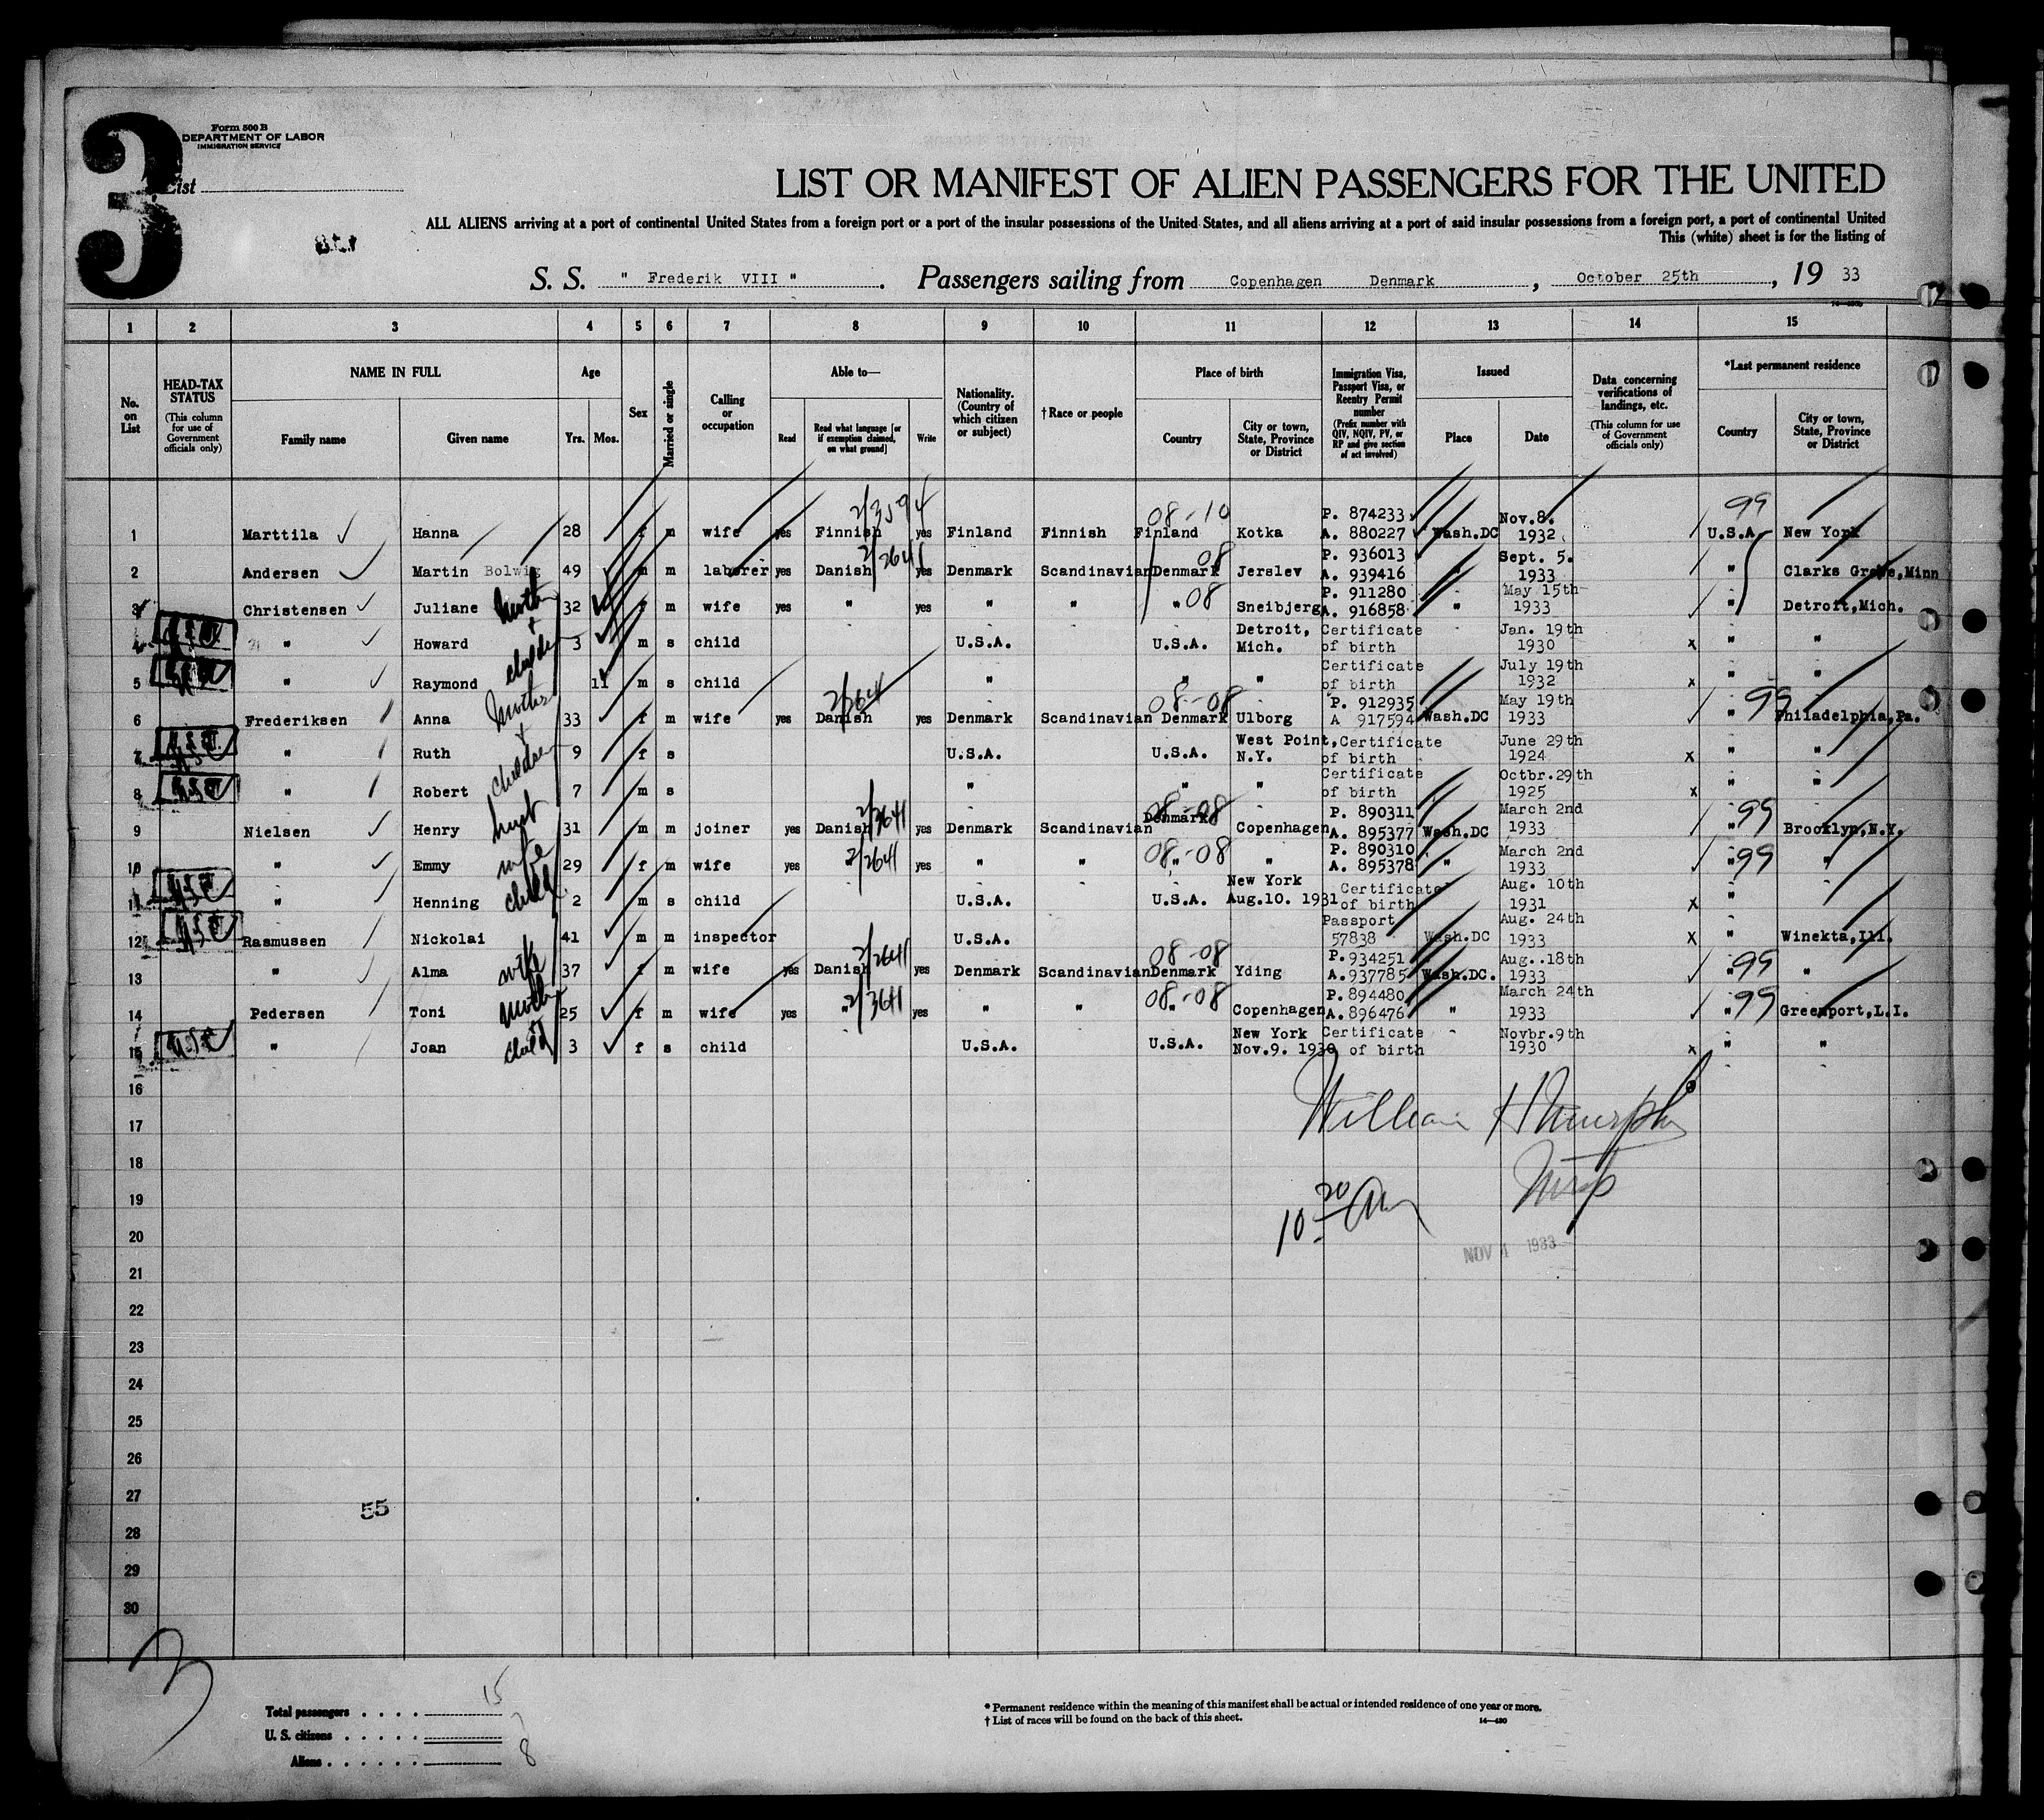 3
Form 500 B
DEPARTMENT OF LABOR
IMMIGRATION SERVICE
List
LIST OR MANIFEST OF ALIEN PASSENGERS FOR THE UNITED
ALL ALIENS arriving at a port of continental United States from a foreign port or a port of the insular possessions of the United States, and all aliens arriving at a port of said insular possessions from a foreign port, a port of continental United
This (white) sheet is for the listing of
S. S. " Frederik VIII " . Passengers sailing from Copenhagen Denmark , October 25th , 19 33
1 2 3 4 5 6 7 8 9 10 11 12 13 14 15
No. on List
HEAD-TAX STATUS (This column for use of Government officials only)
NAME IN FULL
Family name Given name
Age
Yrs. Mos.
Sex
Married or single
Calling or occupation
Able to—
Read Read what language [or if exemption claimed, on what ground] Write
Nationality. (Country of which citizen or subject)
† Race or people
Place of birth
Country City or town, State, Province or District
Immigration Visa, Passport Visa, or Reentry Permit number (Prefix number with QIV, NQIV, PV, or RP and give section of act involved)
Issued
Place Date
Data concerning verifications of landings, etc. (This column for use of Government officials only)
*Last permanent residence
Country City or town, State, Province or District
2/3594 08-10 P. 874233 Nov.8. 99
1 Marttila Hanna 28 f m wife yes Finnish yes Finland Finnish Finland Kotka A. 880227 Wash.DC 1932 U.S.A. New York
08 P. 936013 Sept. 5.
2 Andersen Martin Bolwig 49 m m laborer yes Danish yes Denmark Scandinavian Denmark Jerslev A. 939416 " 1933 " Clarks Grove,Minn
P. 911280 May 15th
3 Christensen Juliane mother 32 f m wife yes " yes " " " 08 Sneibjerg A. 916858 " 1933 " Detroit,Mich.
+ Detroit, Certificate Jan. 19th
4 " Howard 3 m s child U.S.A. U.S.A. Mich. of birth 1930 x " "
Certificate July 19th
5 " Raymond 11 m s child " " " of birth 1932 x " "
mother 2/3641 08-08 P. 912935 May 19th 99
6 Frederiksen Anna 33 f m wife yes Danish yes Denmark Scandinavian Denmark Ulborg A 917594 Wash.DC 1933 " Philadelphia,Pa.
+ West Point, Certificate June 29th
7 " Ruth 9 f s U.S.A. U.S.A. N.Y. of birth 1924 x " "
children Certificate Octbr.29th
8 " Robert 7 m s " " " of birth 1925 x " "
2/3641 08-08 P. 890311 March 2nd 99
9 Nielsen Henry 31 m m joiner yes Danish yes Denmark Scandinavian Denmark Copenhagen A. 895377 Wash.DC 1933 " Brooklyn,N.Y.
wife 2/2641 08-08 P. 890310 March 2nd 99
10 " Emmy 29 f m wife yes yes " " " " A. 895378 " 1933 " "
New York Certificate Aug. 10th
11 " Henning child 2 m s child U.S.A. U.S.A. Aug.10. 1931 of birth 1931 x "
Passport Aug. 24th
12 Rasmussen Nickolai 41 m m inspector U.S.A. 57838 Wash.DC 1933 x " Winekta,Ill.
wife 2/2641 08-08 P.934251 Aug..18th 99
13 " Alma 37 f m wife yes Danish yes Denmark Scandinavian Denmark Yding A.937785 Wash.DC. 1933 " "
mother 2/3641 08-08 P.894480 March 24th 99
14 Pedersen Toni 25 f m wife yes " yes " " " Copenhagen A.896476 " 1933 " Greenport,L.I.
New York Certificate Novbr.9th
15 " Joan child 3 f s child U.S.A. U.S.A. Nov.9. 1930 of birth 1930 x " "
16
17 William H Murphy
18
19
20 10 20 AM
21 NOV 4 1933
22
23
24
25
26
27
55
28
29
30
3
Total passengers 15
U. S. citizens 7
Aliens 8
* Permanent residence within the meaning of this manifest shall be actual or intended residence of one year or more.
† List of races will be found on the back of this sheet.
14—430